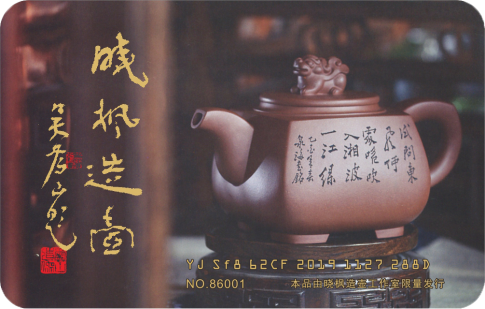 晓枫造壶
吴君山题
试问东
家唯吹
入湘波
一江绿
YJ Sf8 62CF 2019 1127 288D
NO.86001
本品由晓枫造壶工作室限量发行